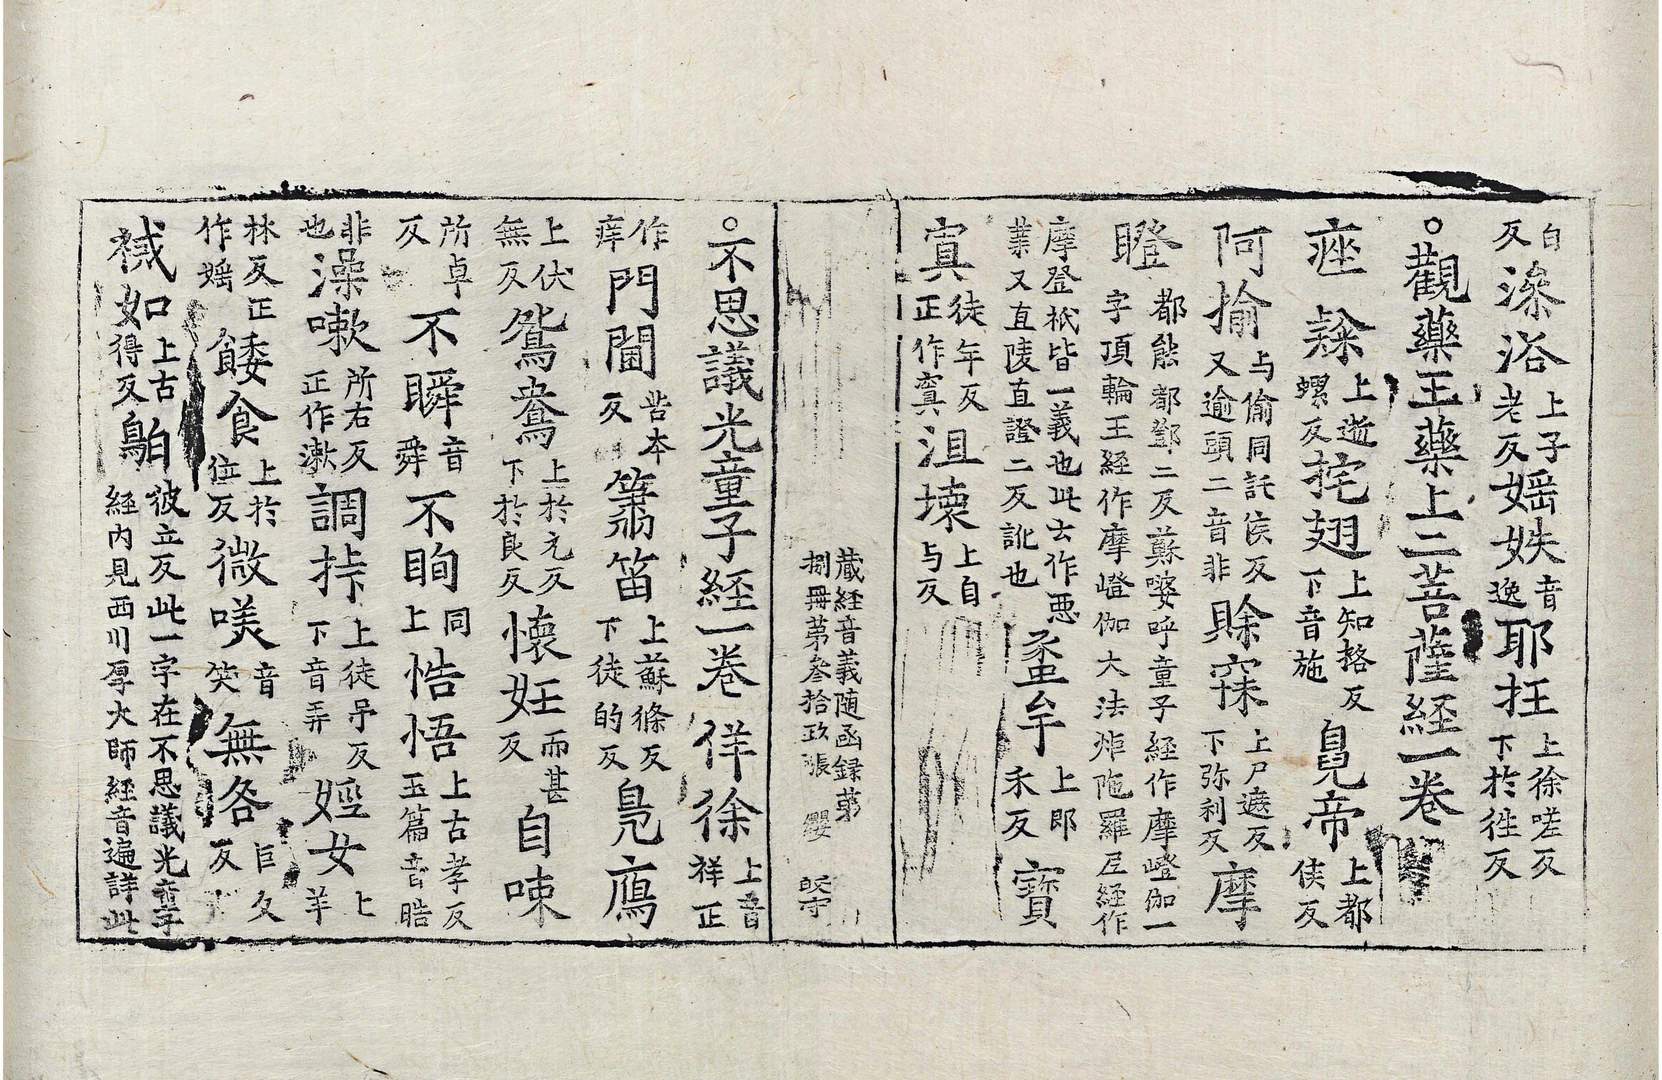 白反澡浴上子老反婬妷音逸耶抂上徐嗟反下於徃反
○觀藥王藥上二菩薩経一卷
痤上逝螺反挓翅上知挌反下音施鳧帝上都侯反
阿揄与偷同託侯反又逾頭二音非賖寐上尸遮反下弥利反摩
瞪都能都鄧二反蘇婆呼童子経作摩嶝伽一字頂輪王経作摩嶝伽大法炬陁羅尼経作
摩登祇皆一義也此去作悪業又直陵直證二反訛也蚉牟上郎禾反寳
寘徒年反正作窴沮壊上自与反
蔵経音義随函録第捌冊第叄拾玖張 纓 皎守
○不思議光童子経一卷 佯徐上音祥正
作痒門閫苦本反簫笛上蘇條反下徒的反鳧鴈
上伏無反鴛鴦上於元反下於良反懐妊而甚反自㖨
所卓反不瞬音舜不眴同上悎悟上古孝反玉篇音晧
非也澡嗽所右反正作漱調挵上徒弔反下音弄婬女上羊
林反正作婬餧食上於位反微㗛音笑無咎巨久反
裓如上古得反鵖彼立反此一字在不思議光童子経内見西川厚大師経音遍詳此